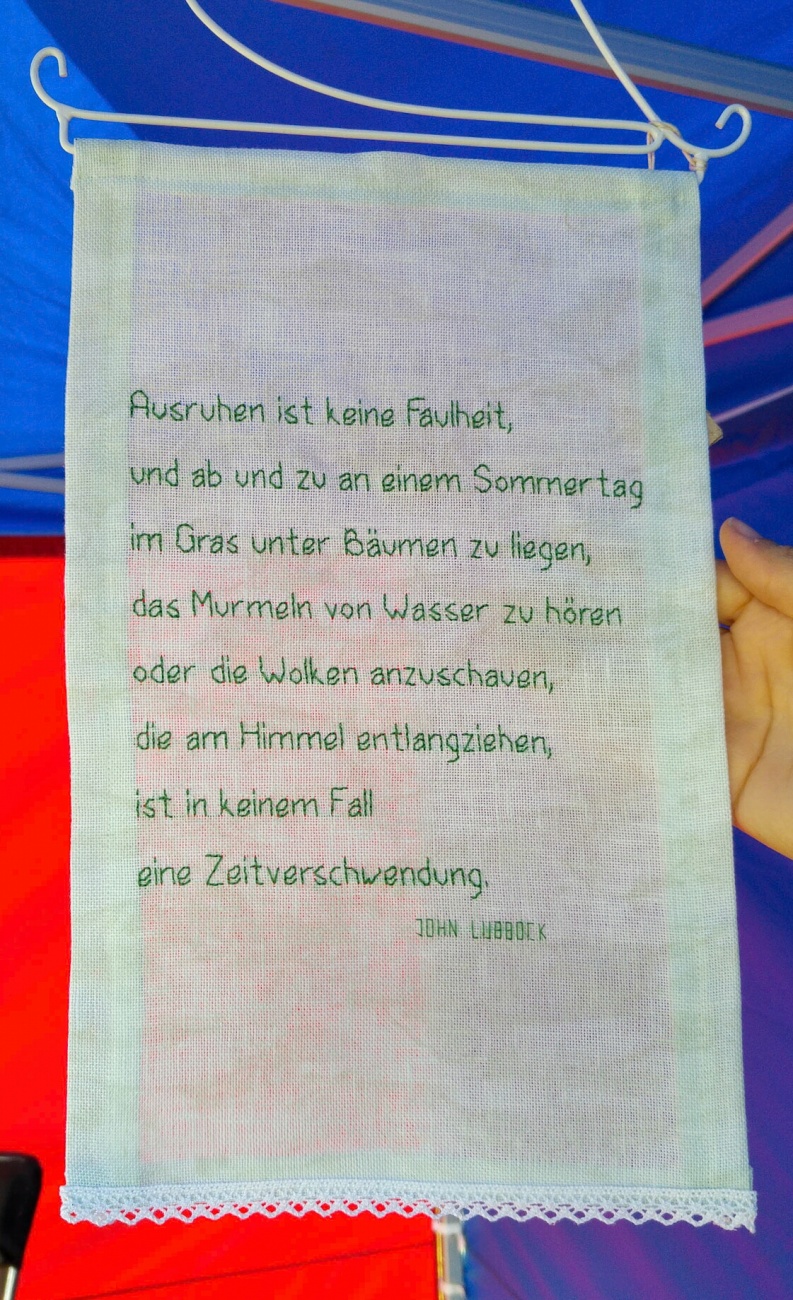 Ausruhen ist keine Faulheit,
und ab und zu an einem Sommertag
im Gras unter Bäumen zu liegen,
das Murmeln von Wasser zu hören
oder die Wolken anzuschauen,
die am Himmel entlangziehen,
ist in keinem Fall
eine Zeitverschwendung.
JOHN LUBBOCK